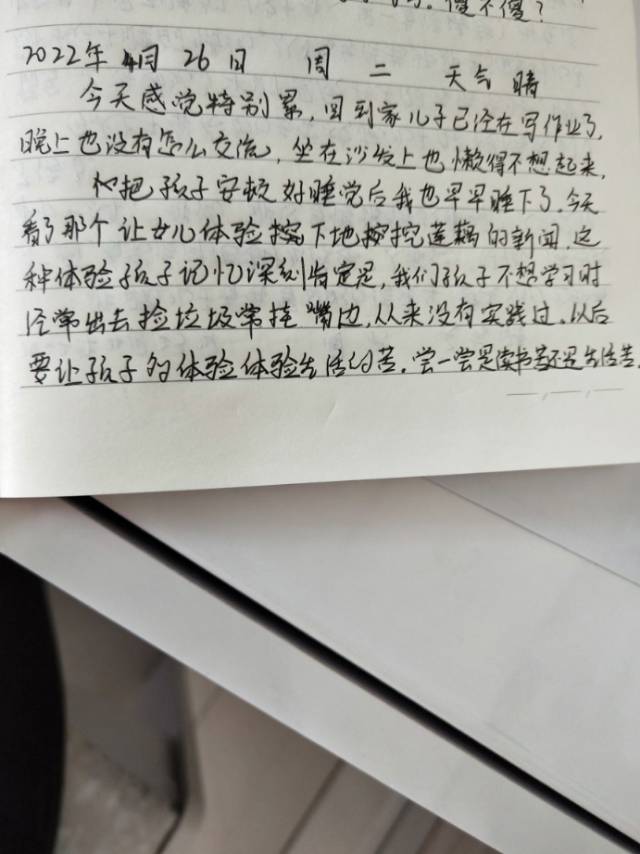 傻不傻？
2022年 4月 26日 周 二 天气 晴
今天感觉特别累，回到家儿子已经在写作业了，
晚上也没有怎么交流，坐在沙发上也懒得不想起来，
把孩子安顿好睡觉后我也早早睡下了。今天
看了那个让女儿体验挖下地挖莲藕的新闻，这
种体验孩子记忆深刻肯定是，我们孩子不想学习时
经常出去捡垃圾常挂嘴边，从来没有实践过。以后
要让孩子多体验体验生活的苦。尝一尝是读书苦还是生活苦.